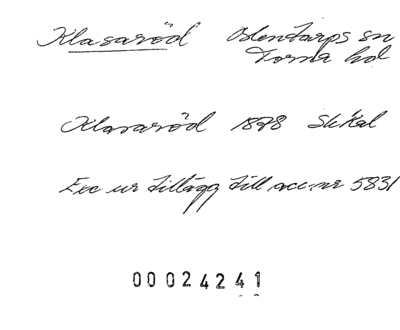 Klasaröd Östentarps sn
Torna hd
Klasaröd 1878 Sk:kal
Exc ur tillägg till acc.nr 5831
00024241